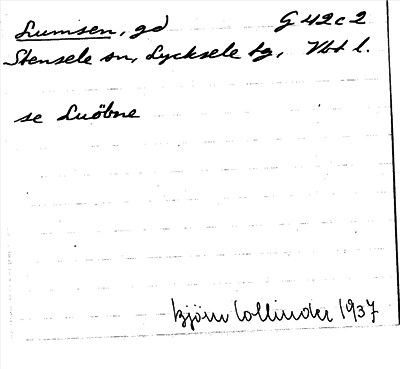 Lumsen, gd G 42 c 2
Stensele sn, Lycksele tg, Vbt l.
se Luöbne
Björn Collinder 1937